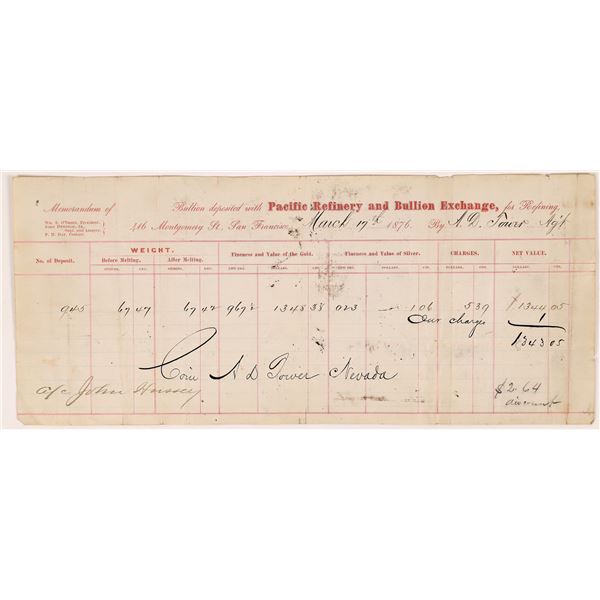 Memorandum of Bullion deposited with Pacific Refinery and Bullion Exchange, for Refining,
416 Montgomery St., San Francisco, March 17th 1876. By A. D. Tower Ag't
No. of Deposit. WEIGHT. Fineness and Value of the Gold. Fineness and Value of Silver. CHARGES. NET VALUE.
Before Melting. After Melting.
OUNCES. DEC. OUNCES. DEC. DOLLARS. CTS. DOLLARS. CTS. DOLLARS. CTS. DOLLARS. CTS.
945 67 47 67 42 967½ 1348 38 023 1 06 5 39 $1344 05
Our charge 1
1343 05
Coin A D Power Nevada
a/c John Hussey
$2.64
discount